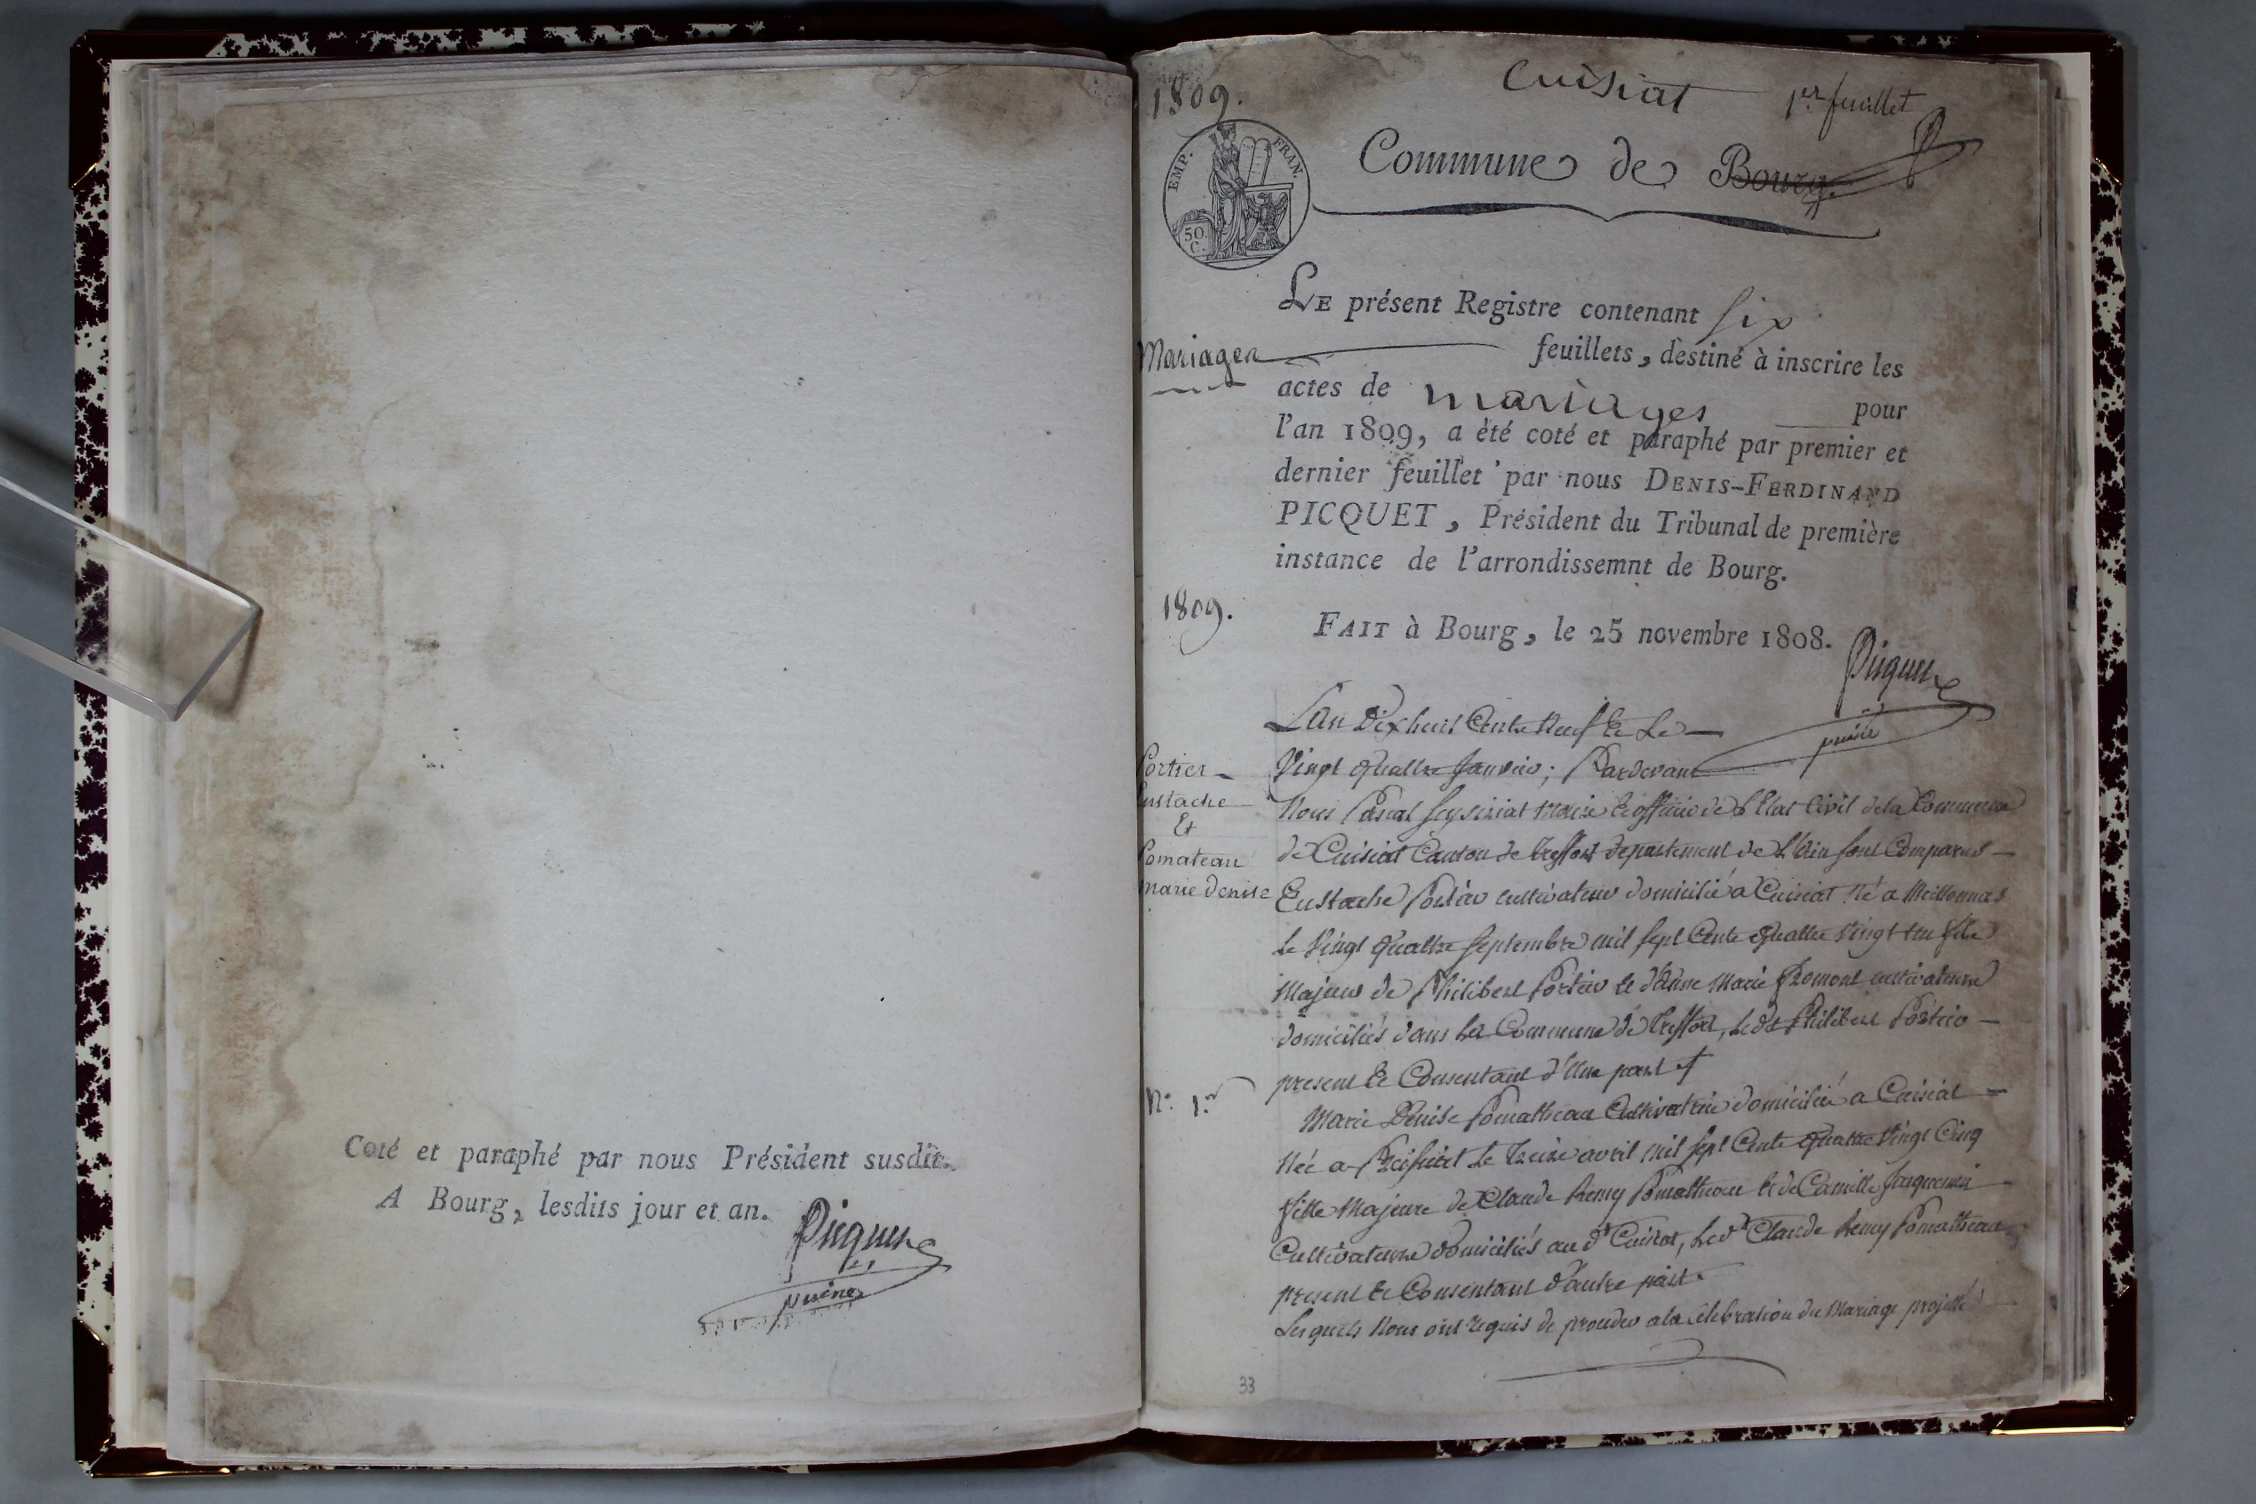 Coté et paraphé par nous Président susdit.
A Bourg, lesdits jour et an.
Picquet
1809.
Cuisiat
1er feuillet
EMP. FRAN.
50. C.
Commune de Bourg.
LE présent Registre contenant six
Mariages
feuillets, destiné à inscrire les
actes de mariages pour
l'an 1809, a été coté et paraphé par premier et
dernier feuillet par nous DENIS-FERDINAND
PICQUET, Président du Tribunal de première
instance de l'arrondissemnt de Bourg.
1809.
FAIT à Bourg, le 25 novembre 1808.
Picquet
Portier
Eustache
Et
Pomateau
marie denise
N.o 1.er
L'an Dixhuit Cents Neuf Et Le
Vingt Quattre Janvier; Pardevant
Nous Pascal Maire Et officier de L'Etat Civil de la Commune
de Cuisiat Canton de treffort departement de L'Ain sont Comparus
Eustache Portier cultivateur domicilié a Cuisiat Né a Meillonnas
le Vingt Quattre septembre mil sept Cents Quattre Vingt un fils
Majeur de Philibert Portier Et d'Anne Marie Promont cultivateurs
domiciliés dans La Commune de treffort, Ledt Philibert Portier
present Et Consentant d'Une part +
Marie Denise Pomatheau Cultivatrice domiciliée a Cuisiat
Née a le treize avril mil sept Cents Quattre Vingt Cinq
fille Majeure de Claude Remy Pomatheau Et de Camille Jacquemin
Cultivateurs domiciliés au dt Cuisiat, Ledt Claude Remy Pomatheau
present Et Consentant d'autre part.
Lesquels Nous ont requis de proceder a la célébration du Mariage projetté
33